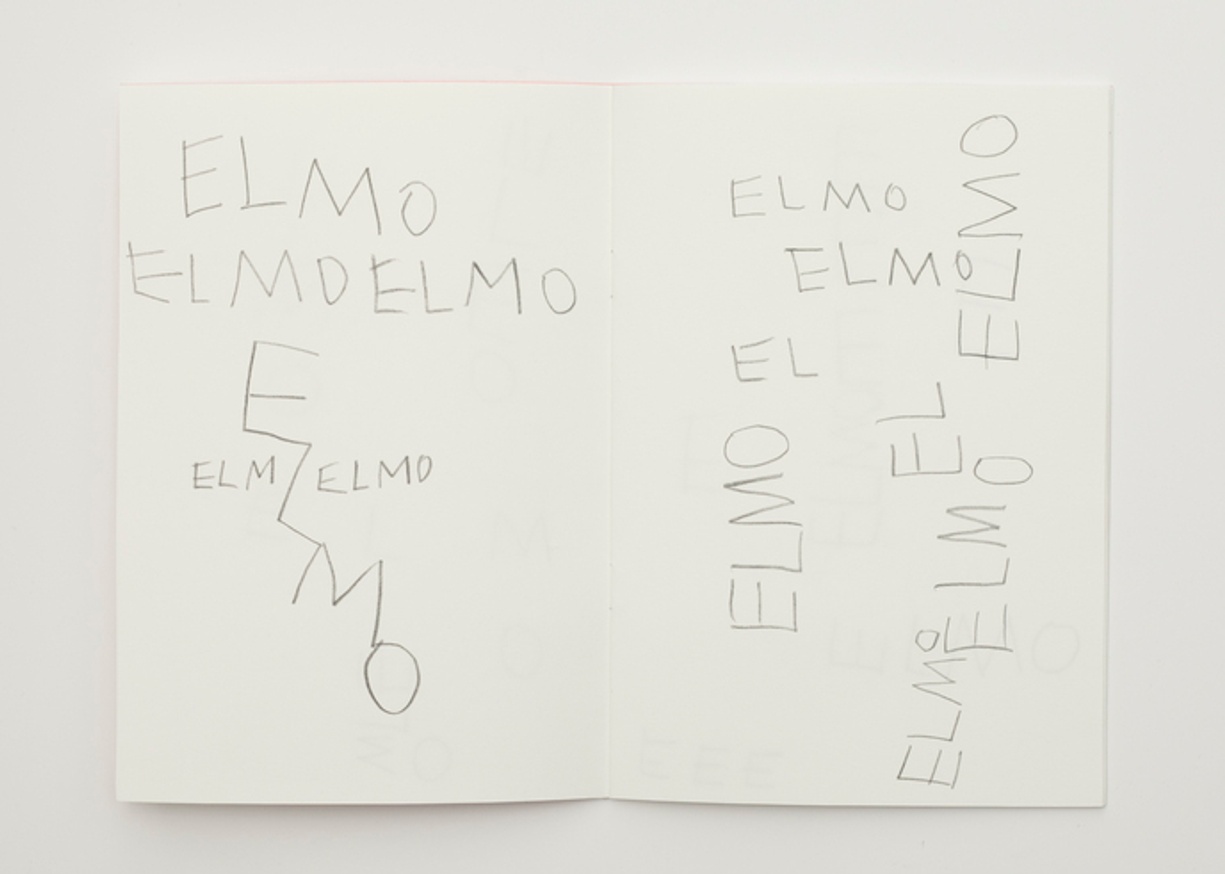 ELMO
ELMOELMO
E
ELM ELMO
L
M
O
ELMO
ELMO
EL
ELMO
ELMO
EL
ELMO
ELMO